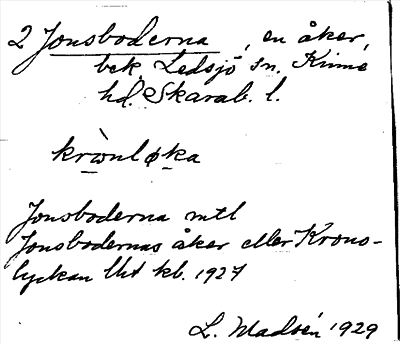 2 Jonsboderna, en åker,
bek. Ledsjö sn. Kinne
hd. Skarab. l.
krònløka
Jonsboderna mtl
Jonsbodernas åker eller Krono-
lyckan Utt kb. 1927
L. Madsén 1929